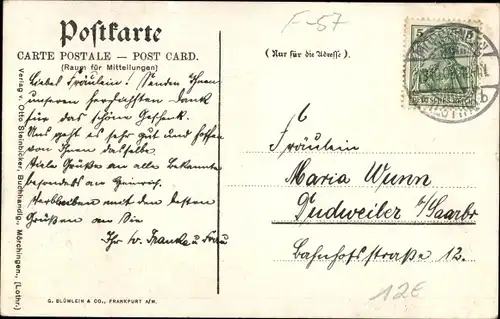 F-57
Postkarte
CARTE POSTALE — POST CARD.
(Raum für Mitteilungen)
(Nur für die Adresse)
5
Liebes Fräulein! Senden Ihnen
unseren herzlichsten Dank
für das schöne Geschenk.
Uns geht es sehr gut und hoffen
von Ihnen dasselbe
Viele Grüße an alle Bekannte
besonders an Heinrich.
Verbleiben mit den besten
Grüßen an Sie
Ihr w. Franke u Frau
Fräulein
Maria Wunn
Dudweiler b/Saarbr
Bahnhofstraße 12.
12€
Verlag v. Otto Steinbicker, Buchhandlg., Mörchingen, (Lothr.)
G. BLÜMLEIN & CO., FRANKFURT A/M.